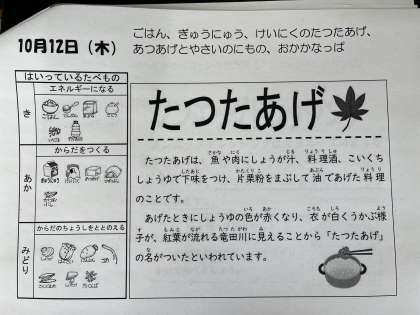 10月12日（木）
ごはん、ぎゅうにゅう、けいにくのたつたあげ、
あつあげとやさいのにもの、おかかなっぱ
はいっているたべもの
き
エネルギーになる
あか
からだをつくる
ぎゅうにゅう
みどり
からだのちょうしをととのえる
たつたあげ
たつたあげは、魚や肉にしょうが汁、料理酒、こいくち
しょうゆで下味をつけ、片栗粉をまぶして油であげた料理
のことです。
あげたときにしょうゆの色が赤くなり、衣が白くうかぶ様
子が、紅葉が流れる竜田川に見えることから「たつたあげ」
の名がついたといわれています。